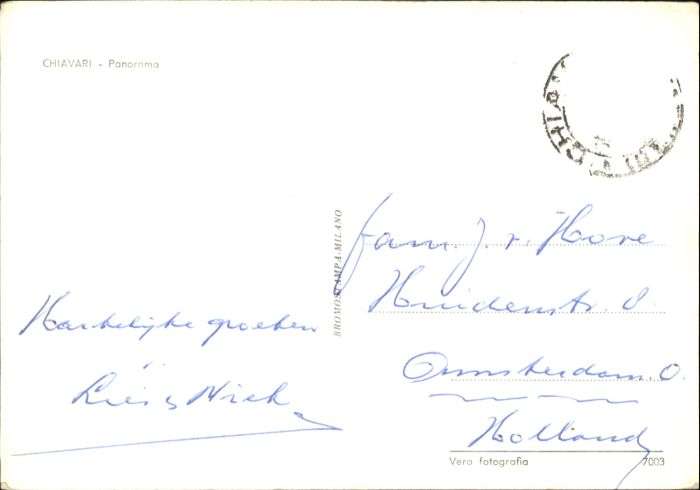 CHIAVARI - Panorama
BROMOSTAMPA-MILANO
Hartelijke groeten
Fam. J. v. Hove
Amsterdam. O.
Holland
Vera fotografia 7003